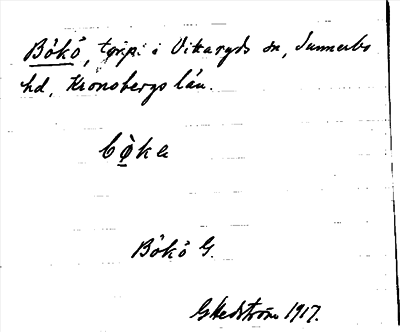 Bökö, torp i Vikaryds sn, Sunnerbo
hd, Kronobergs län.
bø̀ka
Bökö G.
G Hedström 1917.